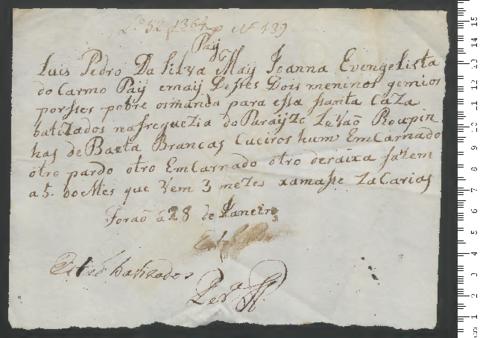 Nº 139
Pay
Luis Pedro Da Silva Maÿ Joanna Evengelista
do Carmo Paÿ emaÿ Destes Dois meninos gemios
porsses pobre osmanda para essa ssanta Caza
batizados nafreguezia do Parayzo Levão Roupin
has de Baeta Brancas Cueiros hum EmCarnado
otro pardo otro EmCarnado otro deraixa fazem
a 5. do Mes que Vem 3 mezes xamasse ZaCarias
Foraõ a 28 de Janeiro